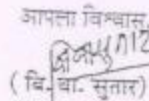 आपला विश्वास
( वि. बा. सुतार)